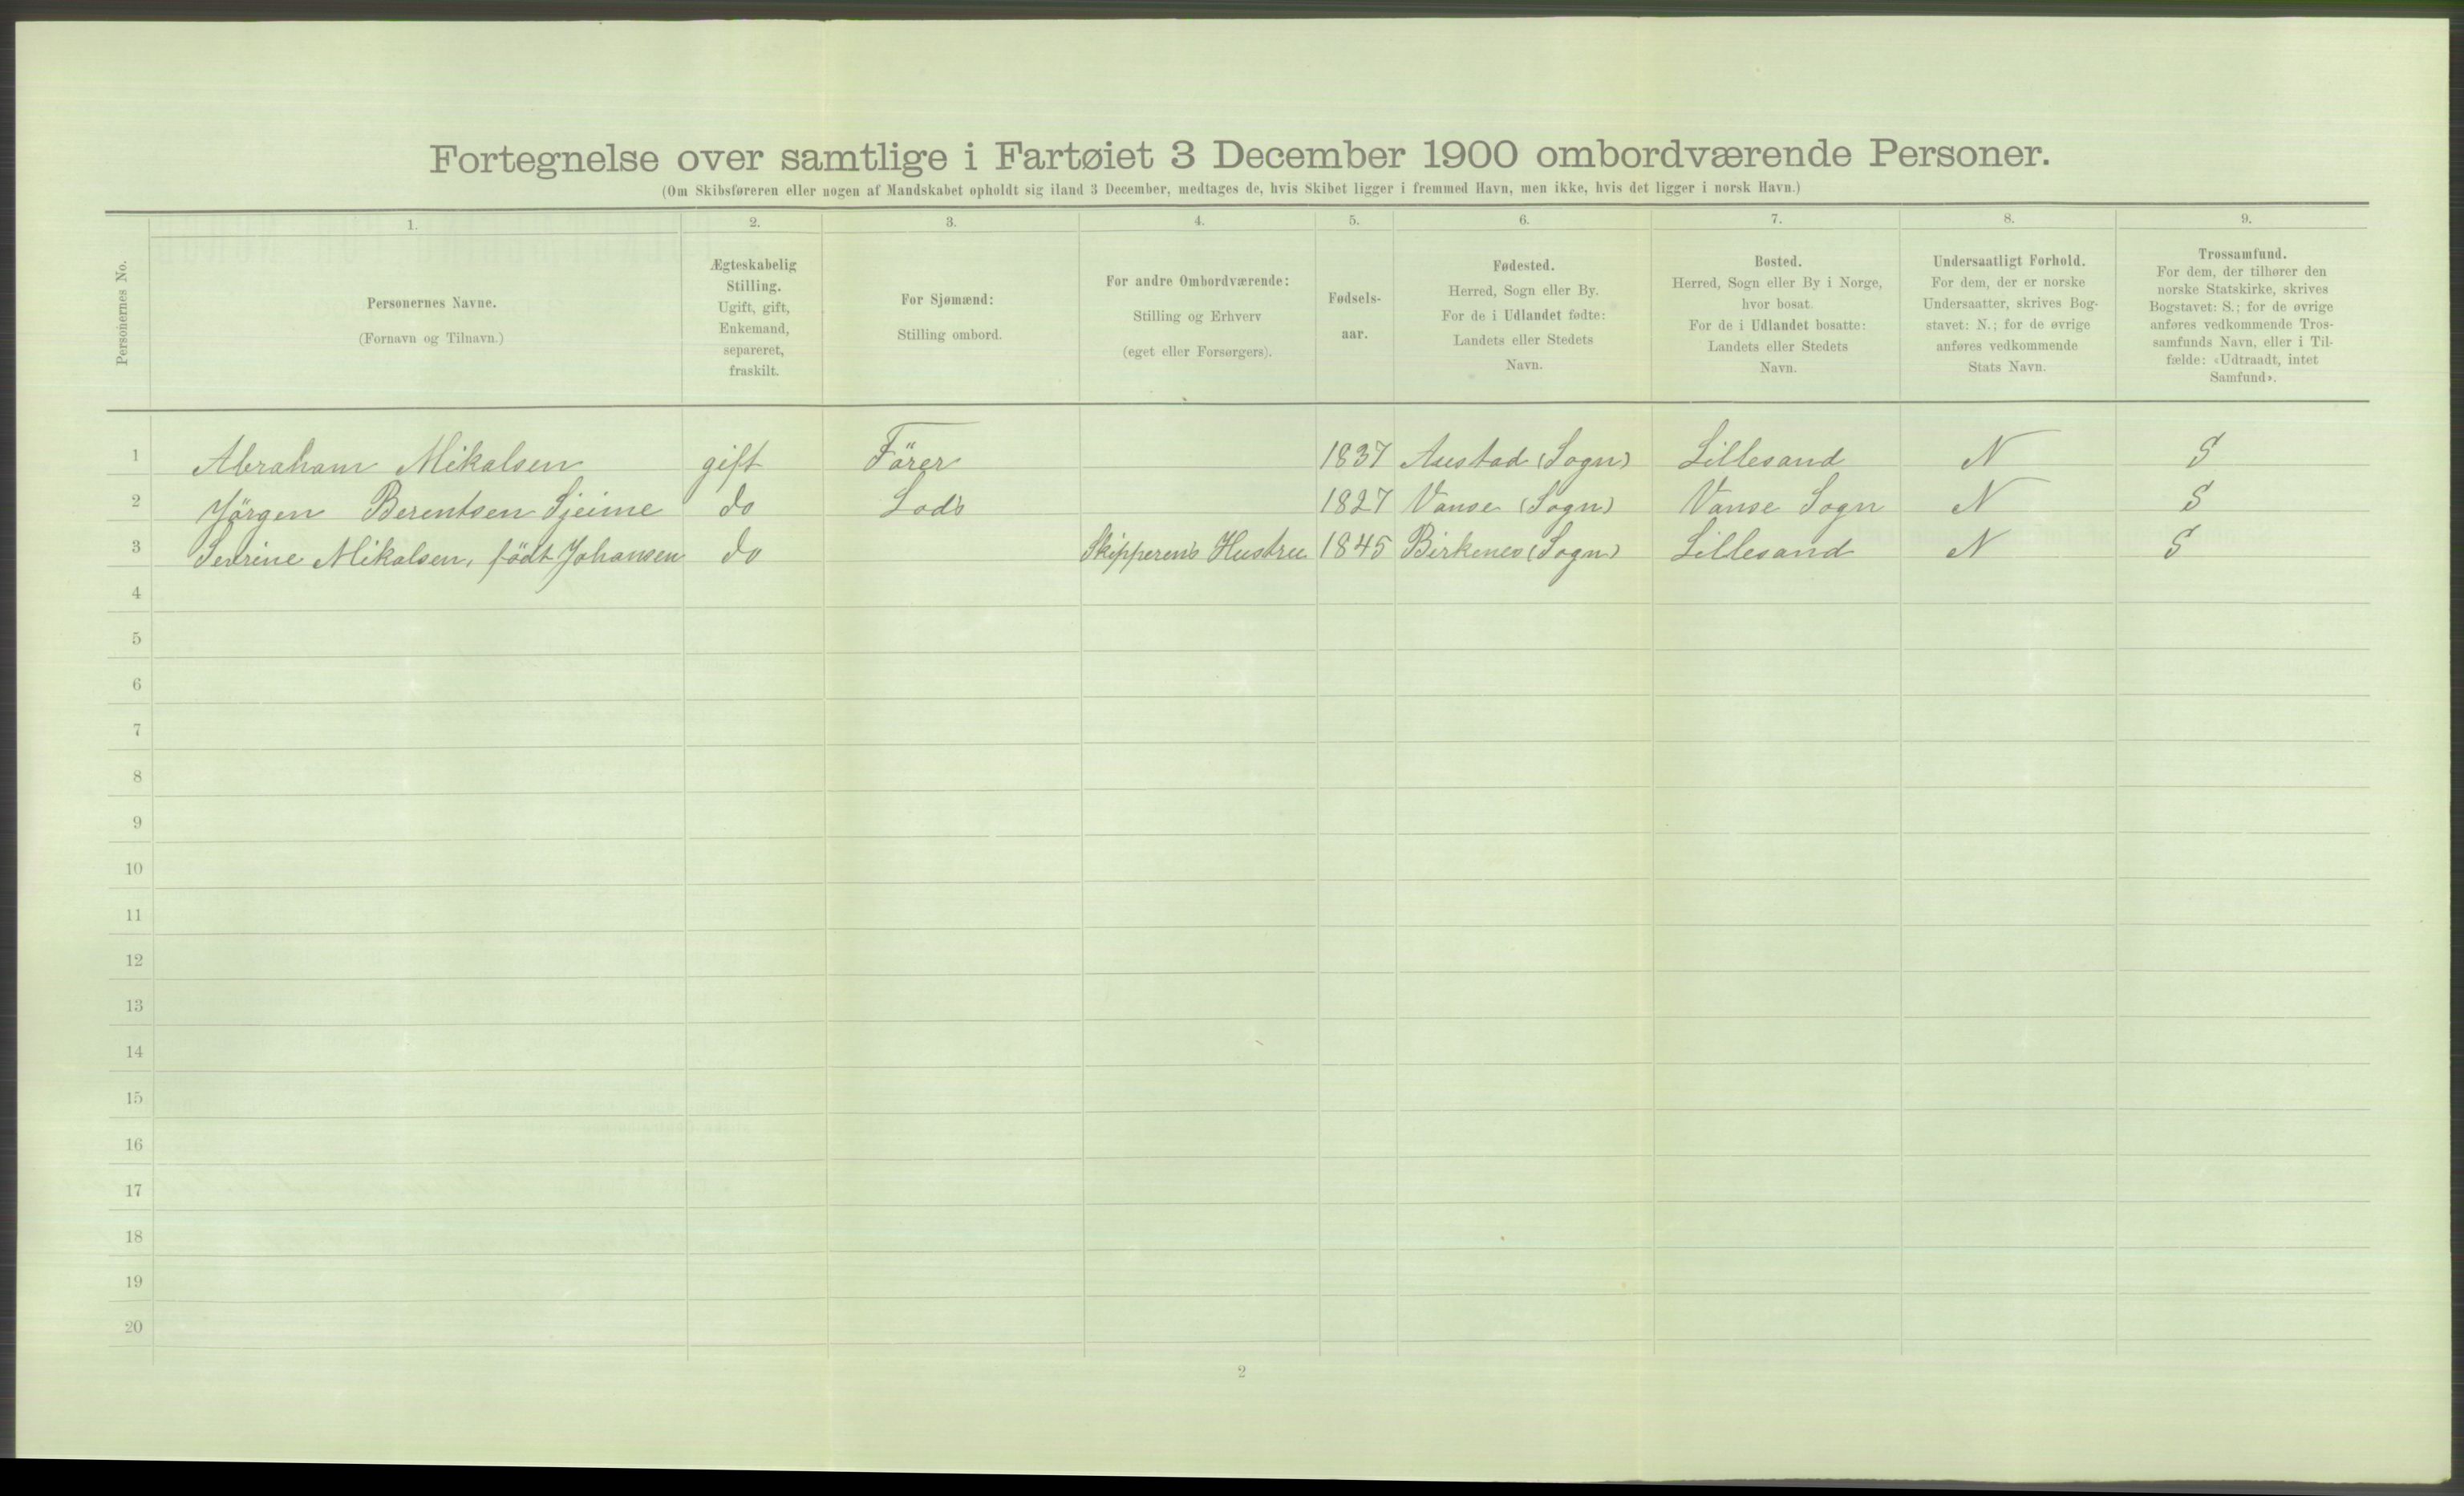 Fortegnelse over samtlige i Fartøiet 3 December 1900 ombordværende Personer.
(Om Skibsføreren eller nogen af Mandskabet opholdt sig iland 3 December, medtages de, hvis Skibet ligger i fremmed Havn, men ikke, hvis det ligger i norsk Havn.)
Personernes No.
1.
Personernes Navne.
(Fornavn og Tilnavn.)
2.
Ægteskabelig
Stilling.
Ugift, gift,
Enkemand,
separeret,
fraskilt.
3.
For Sjømænd:
Stilling ombord.
4.
For andre Ombordværende:
Stilling og Erhverv
(eget eller Forsørgers).
5.
Fødsels-
aar.
6.
Fødested.
Herred, Sogn eller By.
For de i Udlandet fødte:
Landets eller Stedets
Navn.
7.
Bosted.
Herred, Sogn eller By i Norge,
hvor bosat.
For de i Udlandet bosatte:
Landets eller Stedets
Navn.
8.
Undersaatligt Forhold.
For dem, der er norske
Undersaatter, skrives Bog-
stavet: N.; for de øvrige
anføres vedkommende
Stats Navn.
9.
Trossamfund.
For dem, der tilhører den
norske Statskirke, skrives
Bogstavet: S.; for de øvrige
anføres vedkommende Tros-
samfunds Navn, eller i Til-
fælde: «Udtraadt, intet
Samfund».
1 Abraham Mikalsen gift Förer 1837 Austad (Sogn) Lillesand N S
2 Jörgen Berentsen Sjeime do Lods 1827 Vanse (Sogn) Vanse Sogn N S
3 Severine Mikalsen, födt Johansen do Skipperens Hustru 1845 Birkenes (Sogn) Lillesand N S
4
5
6
7
8
9
10
11
12
13
14
15
16
17
18
19
20
2